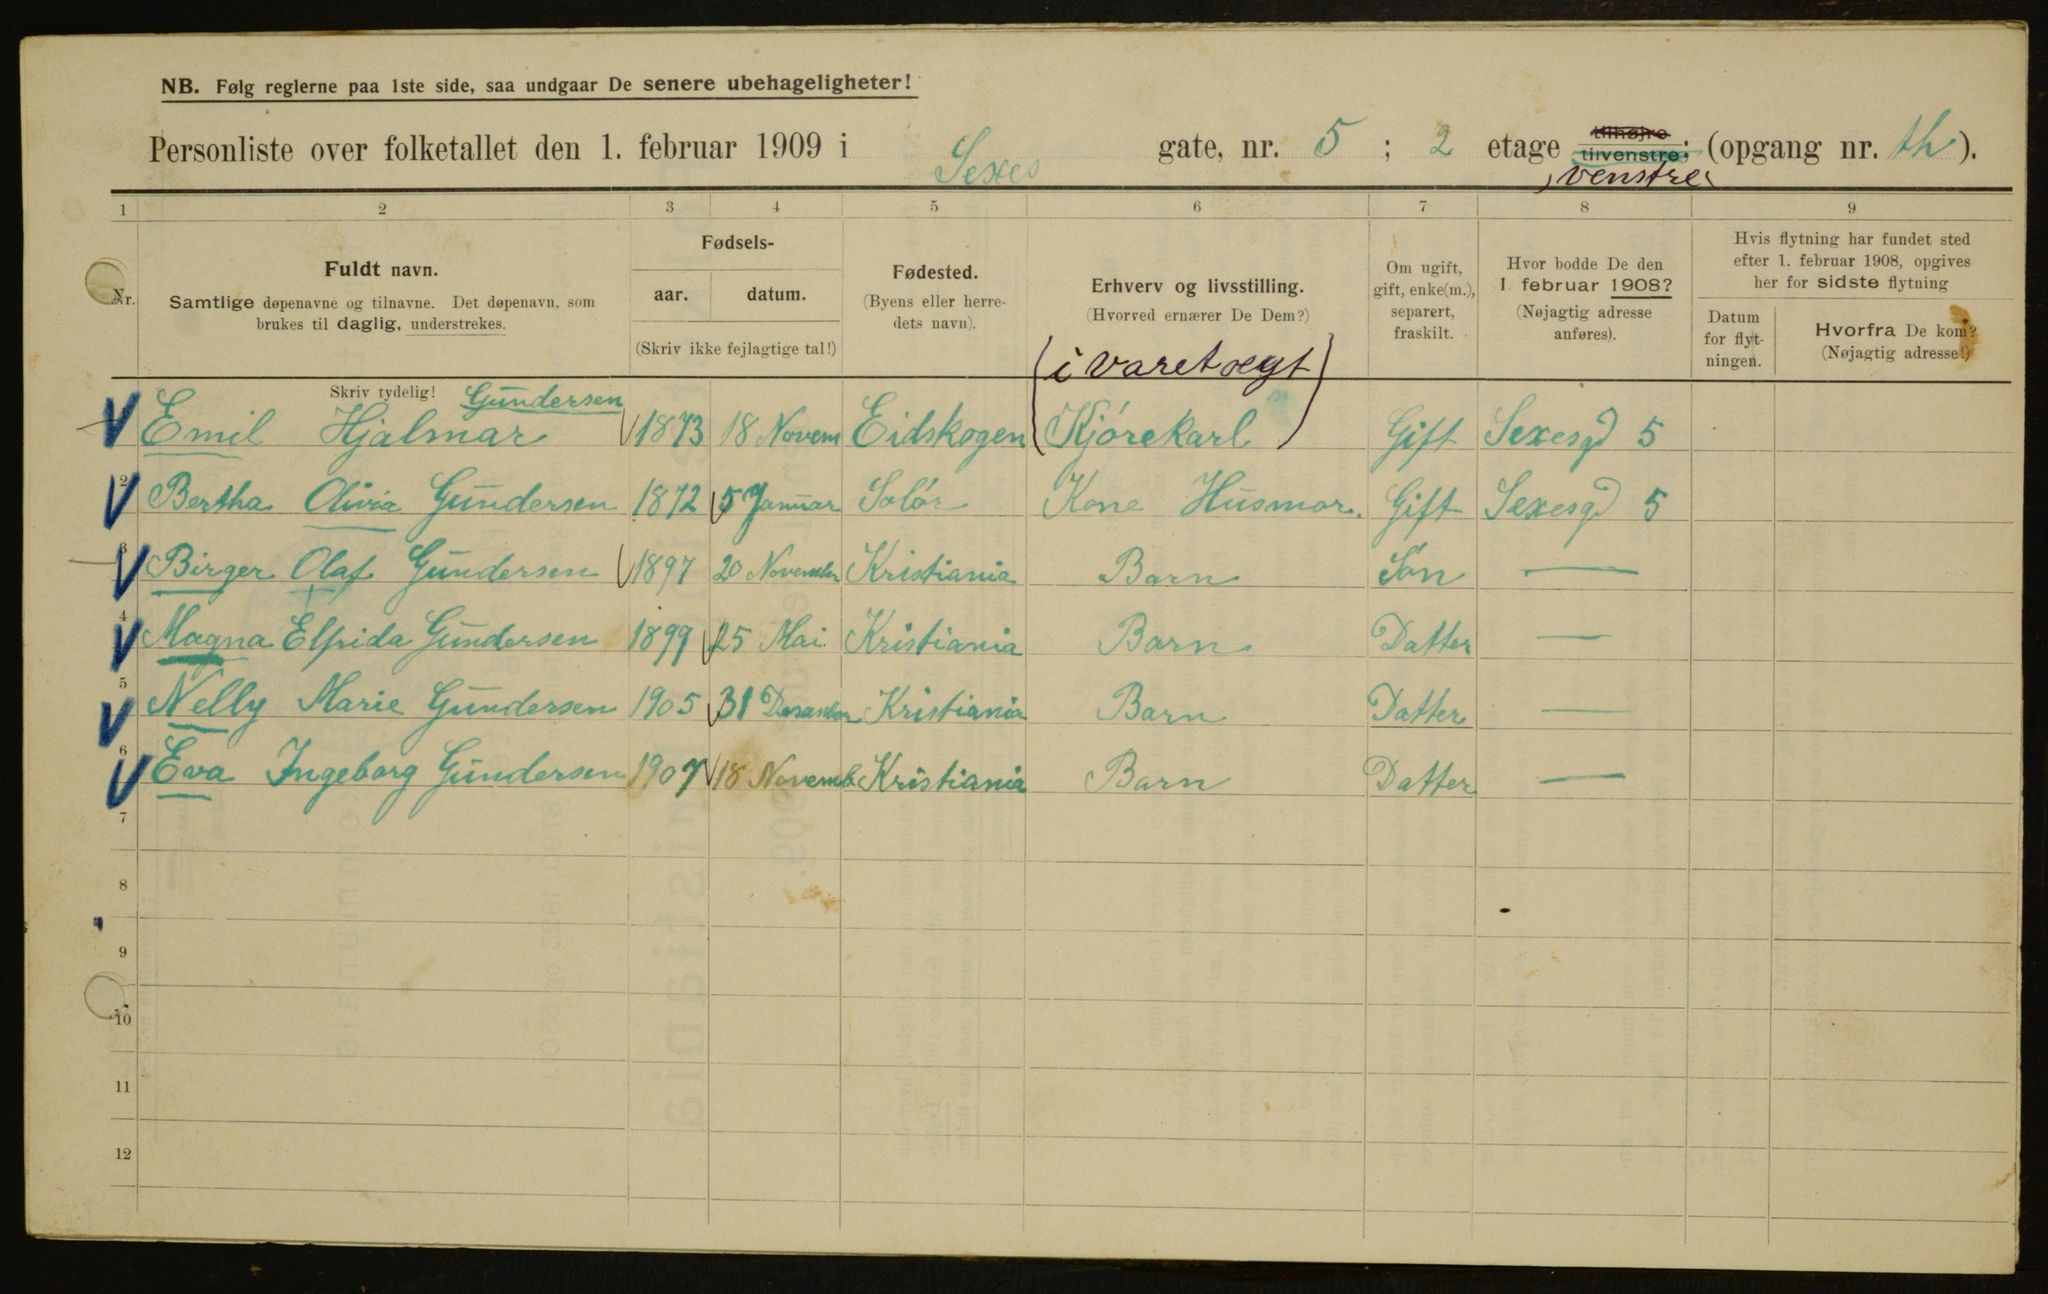 NB. Følg reglerne paa 1ste side, saa undgaar De senere ubehageligheter!
Personliste over folketallet den 1. februar 1909 i Sexes gate, nr. 5 ; 2 etage tilhøjre tilvenstre; (opgang nr. th).
venstre
1 2 3 4 5 6 7 8 9
Nr.
Fuldt navn.
Samtlige døpenavne og tilnavne. Det døpenavn, som
brukes til daglig, understrekes.
Fødsels-
aar. datum.
(Skriv ikke fejlagtige tal!)
Fødested.
(Byens eller herre-
dets navn).
Erhverv og livsstilling.
(Hvorved ernærer De Dem?)
Om ugift,
gift, enke(m.),
separert,
fraskilt.
Hvor bodde De den
1. februar 1908?
(Nøjagtig adresse
anføres).
Hvis flytning har fundet sted
efter 1. februar 1908, opgives
her for sidste flytning
Datum
for flyt-
ningen.
Hvorfra De kom?
(Nøjagtig adresse!)
(i varetægt)
Skriv tydelig! Gundersen
Emil Hjalmar 1873 18 Novem Eidskogen Kjörekarl Gift Sexesgd 5
2 Bertha Olivia Gundersen 1872 5 Januar Solör Kone Husmor. Gift Sexesgd 5
3 Birger Olaf Gundersen 1897 20 November Kristiania Barn Sön —
4 Magna Elfrida Gundersen 1899 25 Mai Kristiania Barn Datter —
5 Nelly Marie Gundersen 1905 31 Desember Kristiania Barn Datter —
6 Eva Ingeborg Gundersen 1907 18 Novemb Kristiania Barn Datter —
7
8
9
10
11
12